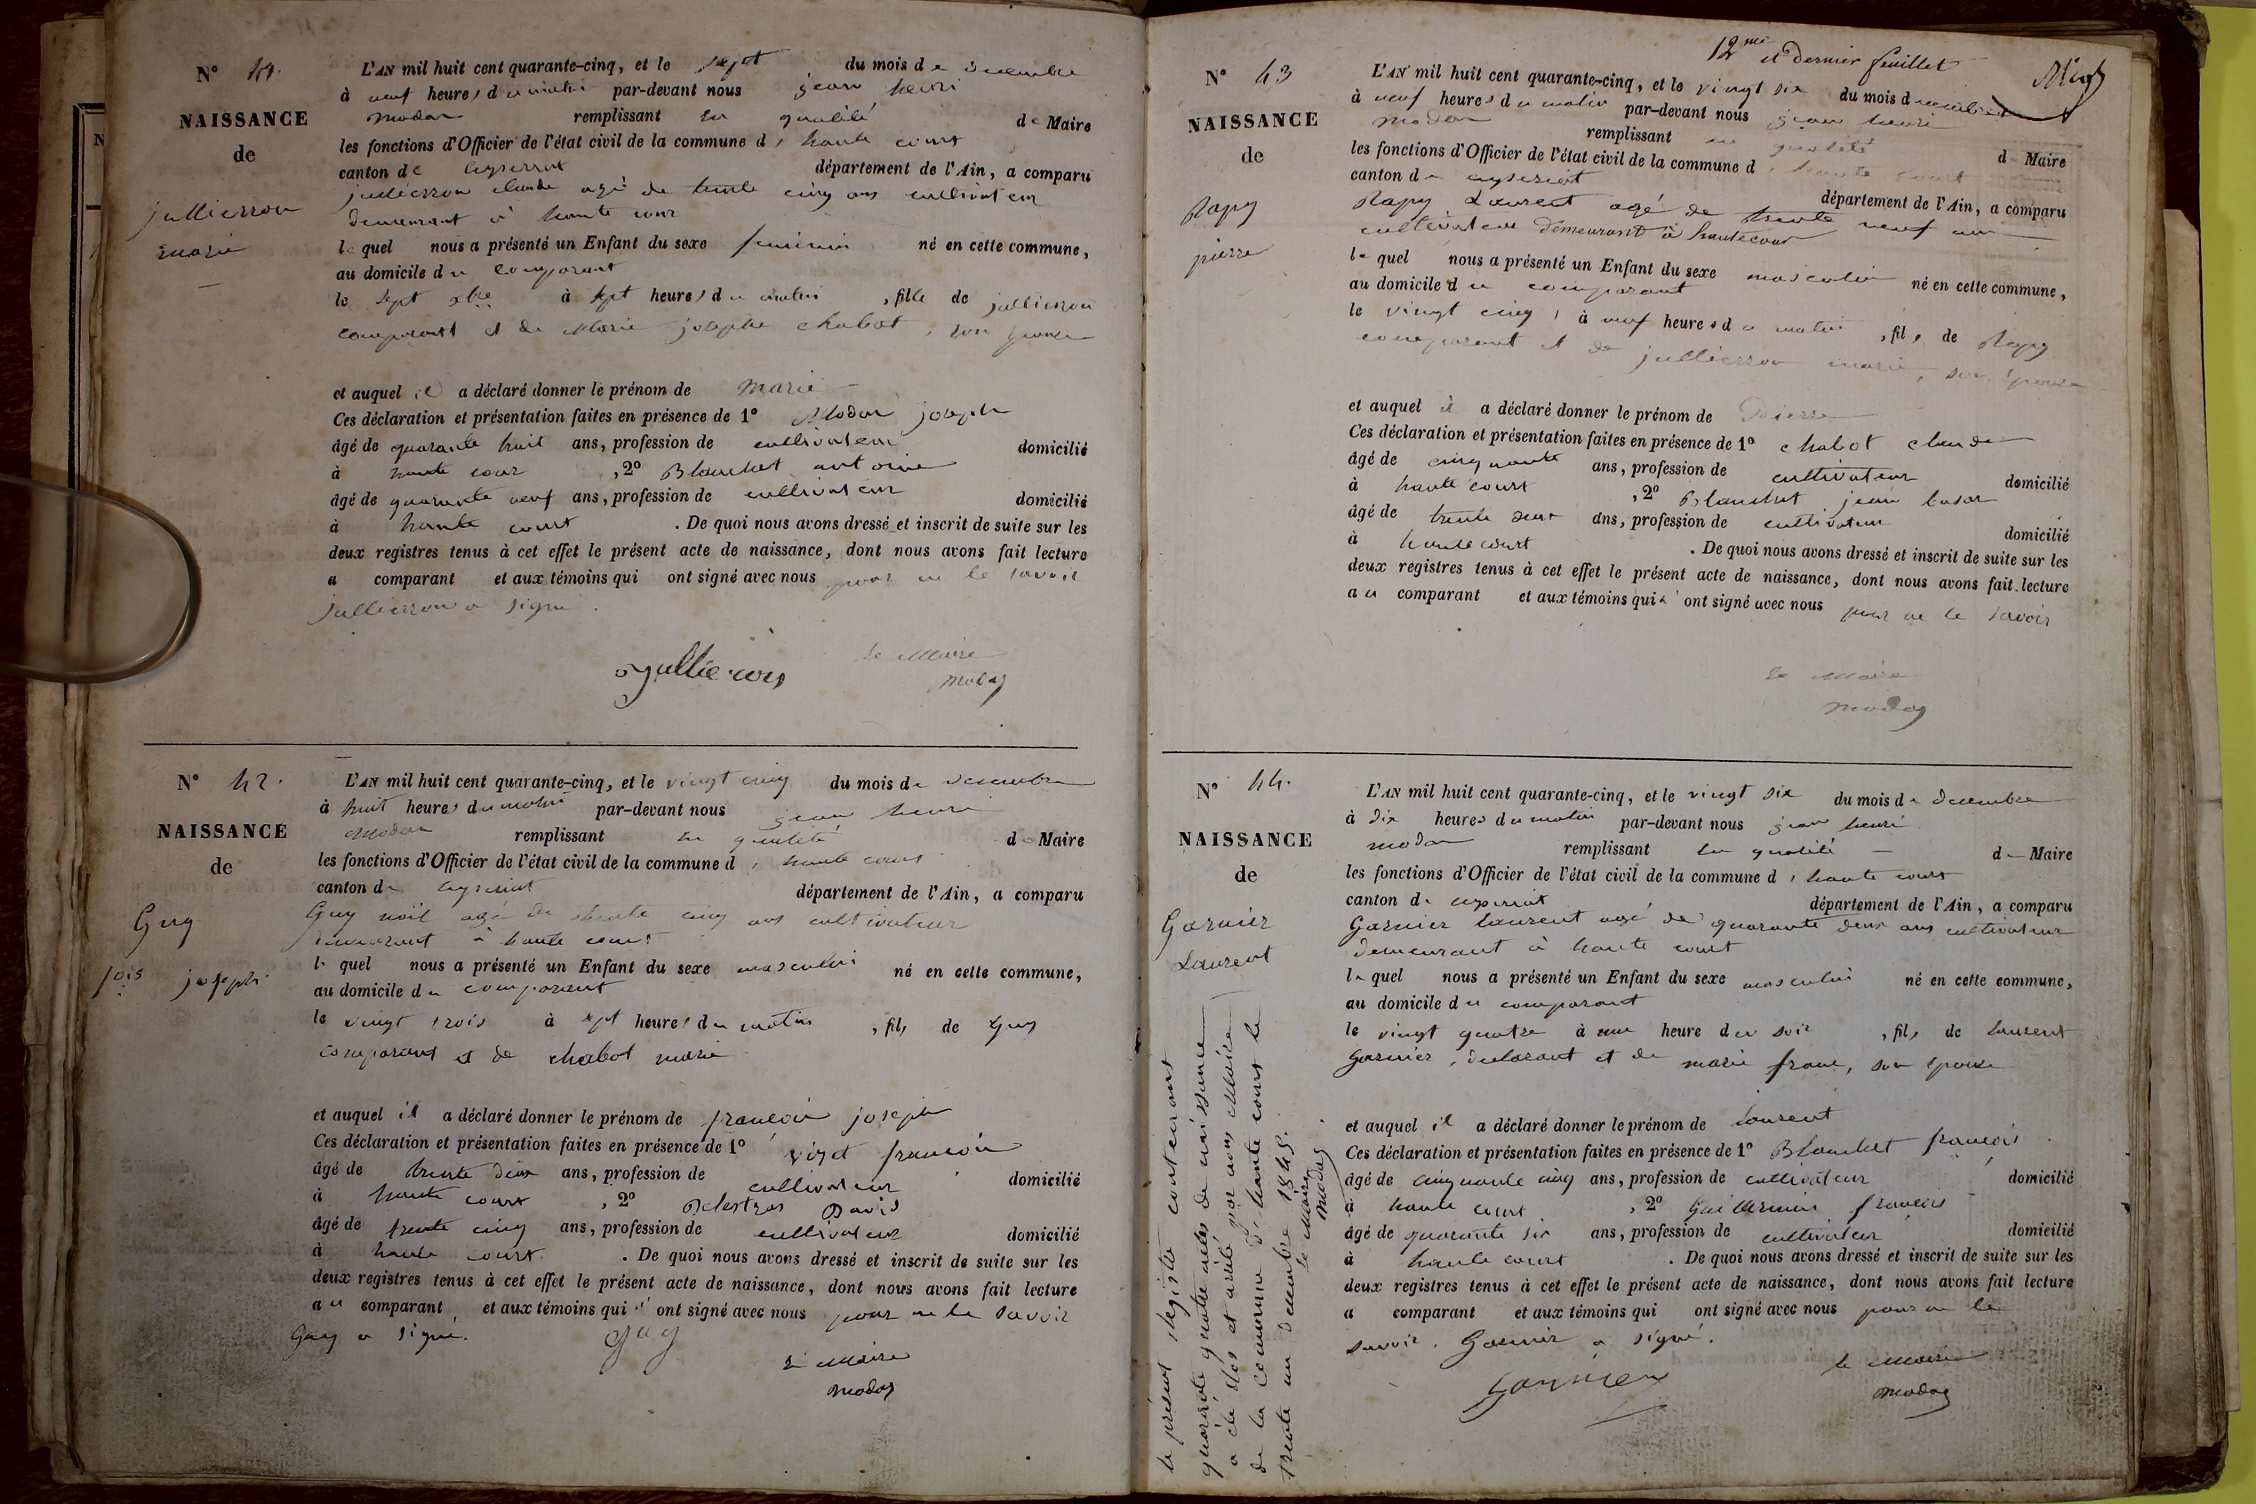 N° 41.
NAISSANCE
de
jullierron
marie
L'AN mil huit cent quarante-cinq, et le sept du mois de decembre
à neuf heures du matin par-devant nous jean henri
modas remplissant en qualité de Maire
les fonctions d'Officier de l'état civil de la commune d, haute court
canton de ceyserrat département de l'Ain, a comparu
jullierron claude agé de trente cinq ans cultivateur
demeurant à haute cour
lequel nous a présenté un Enfant du sexe feminin né en cette commune,
au domicile du comparant
le sept xbre à sept heures du matin, fille de jullierron
comparant et de Marie josephe chabot, son epouse
et auquel il a déclaré donner le prénom de Marie
Ces déclaration et présentation faites en présence de 1° Modas joseph
âgé de quarante huit ans, profession de cultivateur domicilié
à haute cour, 2° Blanchet antoine
âgé de quarante neuf ans, profession de cultivateur domicilié
à haute court. De quoi nous avons dressé et inscrit de suite sur les
deux registres tenus à cet effet le présent acte de naissance, dont nous avons fait lecture
a comparant et aux témoins qui ont signé avec nous pour ne le savoir
jullierron a signé.
Jullierron
le Maire
modas
N° 42.
NAISSANCE
de
Guy
fois joseph
L'AN mil huit cent quarante-cinq, et le vingt cinq du mois de decembre
à huit heures du matin par-devant nous jean henri
modas remplissant en qualité de Maire
les fonctions d'Officier de l'état civil de la commune d, haute court
canton de ceyseriat département de l'Ain, a comparu
Guy noël agé de trente cinq ans cultivateur
demeurant à haute court
lequel nous a présenté un Enfant du sexe masculin né en cette commune,
au domicile du comparant
le vingt trois à sept heures du matin, fils de Guy
comparant et de chabot marie
et auquel il a déclaré donner le prénom de francois joseph
Ces déclaration et présentation faites en présence de 1° francois
âgé de trente deux ans, profession de cultivateur domicilié
à haute court, 2° Delestras David
âgé de trente cinq ans, profession de cultivateur domicilié
à haute court. De quoi nous avons dressé et inscrit de suite sur les
deux registres tenus à cet effet le présent acte de naissance, dont nous avons fait lecture
au comparant et aux témoins qui n'ont signé avec nous pour ne le savoir
Guy a signé.
guy
le Maire
modas
12me et Dernier feuillet
N° 43
NAISSANCE
de
Rapy
pierre
L'AN mil huit cent quarante-cinq, et le vingt six du mois decembre
à neuf heures du matin par-devant nous jean henri
modas remplissant en qualité de Maire
les fonctions d'Officier de l'état civil de la commune d, haute court
canton de ceyseriat département de l'Ain, a comparu
Rapy Laurent agé de trente neuf ans
cultivateur demeurant à hautecour
lequel nous a présenté un Enfant du sexe masculin né en cette commune,
au domicile du comparant
le vingt cinq, à neuf heures du matin, fils de Rapy
comparant et de jullierron marie, son epouse
et auquel il a déclaré donner le prénom de Pierre
Ces déclaration et présentation faites en présence de 1° chabot claude
âgé de cinquante ans, profession de cultivateur domicilié
à haute court, 2° Blanchet jean
âgé de trente deux ans, profession de cultivateur domicilié
à haute court. De quoi nous avons dressé et inscrit de suite sur les
deux registres tenus à cet effet le présent acte de naissance, dont nous avons fait lecture
au comparant et aux témoins qui n'ont signé avec nous pour ne le savoir
le Maire
modas
N° 44.
NAISSANCE
de
Garnier
Laurent
L'AN mil huit cent quarante-cinq, et le vingt six du mois de decembre
à dix heures du matin par-devant nous jean henri
modas remplissant en qualité de Maire
les fonctions d'Officier de l'état civil de la commune d, haute court
canton de ceyseriat département de l'Ain, a comparu
Garnier laurent agé de quarante deux ans cultivateur
demeurant à haute court
lequel nous a présenté un Enfant du sexe masculin né en cette commune,
au domicile du comparant
le vingt quatre à une heure du soir, fils de laurent
Garnier, declarant et de marie franc, son epouse
et auquel il a déclaré donner le prénom de laurent
Ces déclaration et présentation faites en présence de 1° Blanchet francois
âgé de cinquante cinq ans, profession de cultivateur domicilié
à haute court, 2° Guillermin francois
âgé de quarante six ans, profession de cultivateur domicilié
à haute court. De quoi nous avons dressé et inscrit de suite sur les
deux registres tenus à cet effet le présent acte de naissance, dont nous avons fait lecture
a comparant et aux témoins qui ont signé avec nous pour ne le
savoir. Garnier a signé.
Garnier
le Maire
modas
le présent registre contenant
quarante quatre actes de naissance
a été clos et arrêté par nous Maire
de la commune d, haute court le
trente un decembre 1845.
le Maire
modas